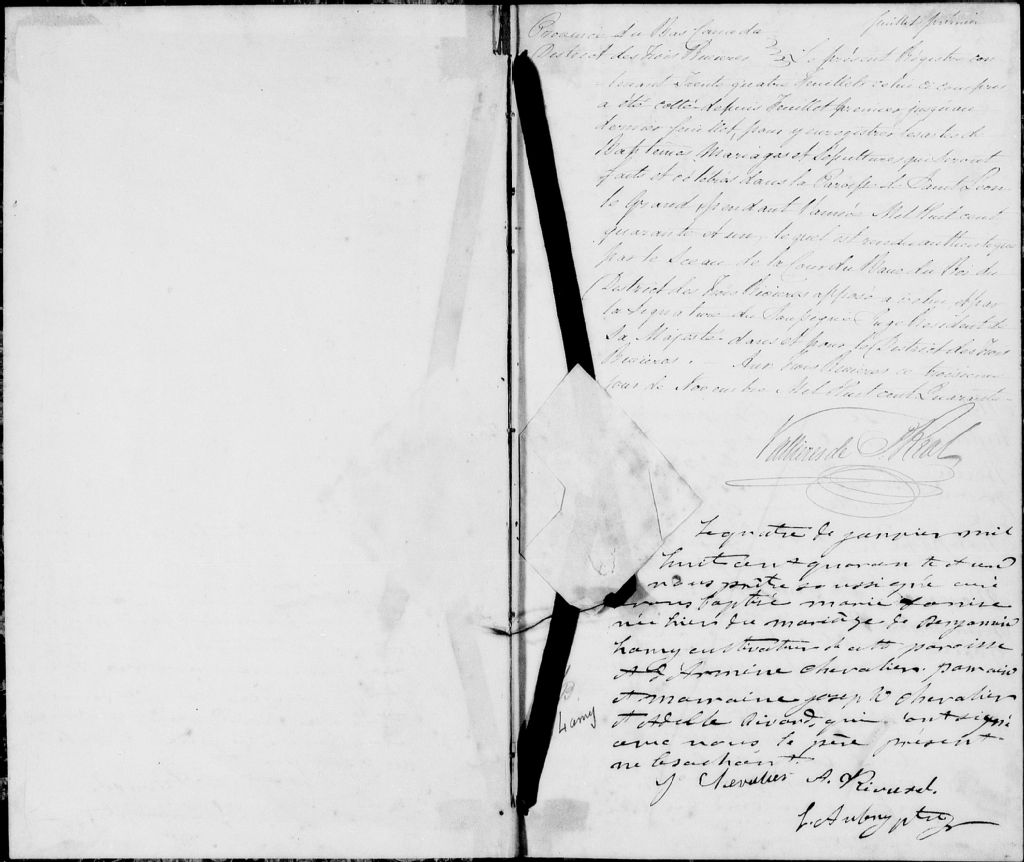 feuillet premier
Province du Bas Canada
District des Trois Rivieres } Le présent Régistre con
tenant Trente quatre feuillets celui ci compris
a été cotté depuis feuillet premier jusqu'au
dernier feuillet, pour y enregistrer les actes de
Baptemes Mariages et Sépultures qui seront
faits et célébrés dans la Paroisse de Saint Léon
le Grand pendant l'année Mil Huit cent
quarante et un, lequel est rendu authentique
par le Sceau de la Cour du Banc du Roi du
District des Trois Rivieres apposé à icelui et par
la Signature du Juge Résident de
Sa Majesté dans et pour le District des Trois
Rivieres. Aux Trois Rivieres ce troisieme
jour de Novembre Mil Huit cent Quarante
Vallieres de St Real
Le quatre de janvier mil
huit cent quarante et un
nous prêtre soussigné curé
avons baptisé marie
née hier du mariage de Benjamin
Lamy cultivateur de cette paroisse
et d'Armine Chevalier. parrain
et marraine joseph Chevalier
et Adelle Rivard, qui ont signé
avec nous, le père présent
ne le sachant.
B.
Lamy
J Chevalier A. Rivard.
L. Aubry ptre